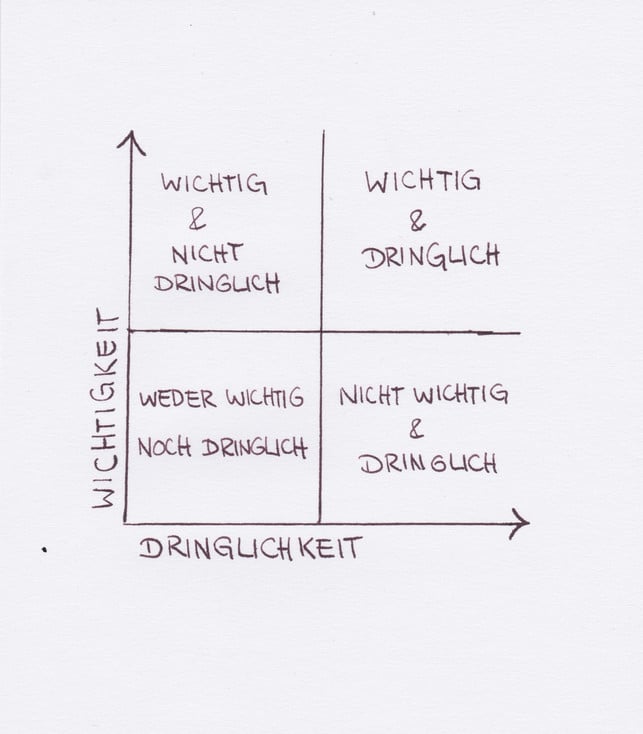 WICHTIG
&
NICHT
DRINGLICH
WICHTIG
&
DRINGLICH
WICHTIGKEIT
WEDER WICHTIG
NOCH DRINGLICH
NICHT WICHTIG
&
DRINGLICH
DRINGLICHKEIT